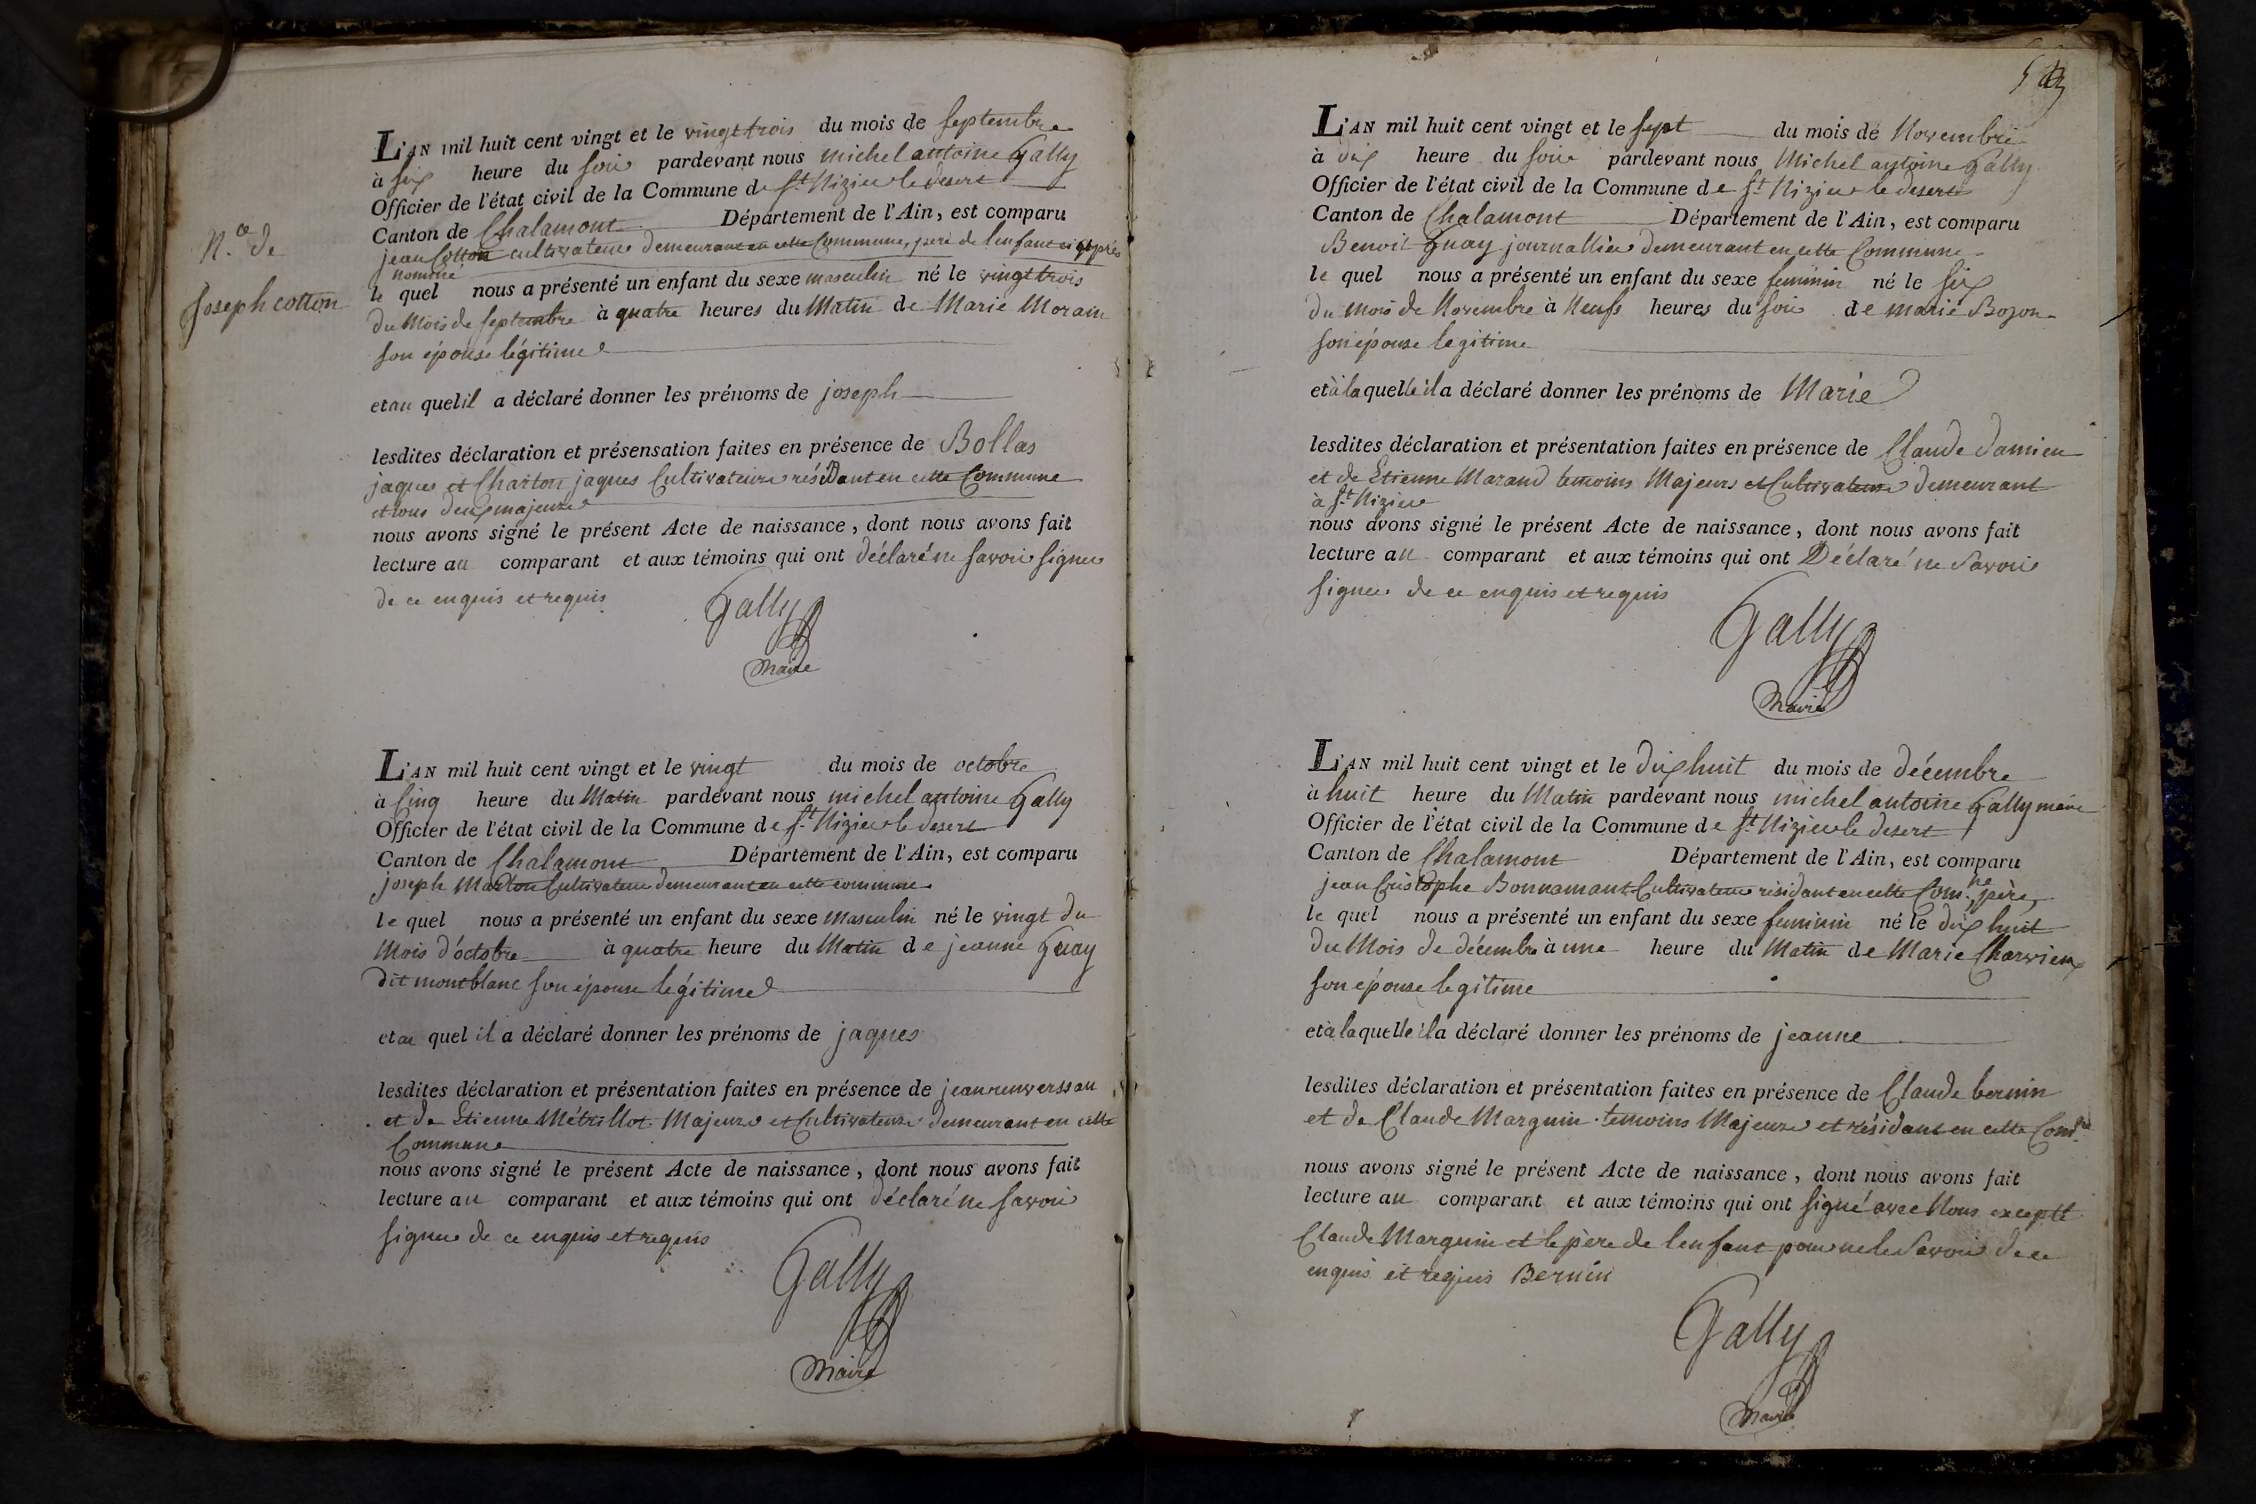 L'AN mil huit cent vingt et le vingt trois du mois de septembre
à six heure du soir pardevant nous michel antoine Gally
Officier de l'état civil de la Commune de St Nizier le désert
Canton de Chalamont Département de l'Ain, est comparu
jean Cotton cultivateur demeurant en cette Commune, père de l'enfant ci après
nommé
le quel nous a présenté un enfant du sexe masculin né le vingt trois
du Mois de septembre à quatre heures du Matin de Marie Morain
son épouse légitime
N.ce de
Joseph cotton
et au quel il a déclaré donner les prénoms de joseph
lesdites déclaration et présensation faites en présence de Bollas
jaques et Charton jaques Cultivateurs résidant en cette Commune
et tous deux majeurs
nous avons signé le présent Acte de naissance, dont nous avons fait
lecture au comparant et aux témoins qui ont déclaré ne savoir signer
de ce enquis et requis
Gally
Maire
L'AN mil huit cent vingt et le vingt du mois de octobre
à Cinq heure du Matin pardevant nous michel antoine Gally
Officier de l'état civil de la Commune de St Nizier le desert
Canton de Chalamont Département de l'Ain, est comparu
joseph Marton Cultivateur demeurant en cette commune
le quel nous a présenté un enfant du sexe Masculin né le vingt du
Mois d'octobre à quatre heure du Matin de jeanne Guay
dit montblanc son épouse légitime
et au quel il a déclaré donner les prénoms de jaques
lesdites déclaration et présentation faites en présence de jean
et de Etienne Métrillot Majeurs et Cultivateurs demeurant en cette
Commune
nous avons signé le présent Acte de naissance, dont nous avons fait
lecture au comparant et aux témoins qui ont déclaré ne savoir
signer de ce enquis et requis
Gally
Maire
L'AN mil huit cent vingt et le sept du mois de Novembre
à dix heure du soir pardevant nous Michel antoine Gally
Officier de l'état civil de la Commune de St Nizier le desert
Canton de Chalamont Département de l'Ain, est comparu
Benoit Guay journallier demeurant en cette Commune
le quel nous a présenté un enfant du sexe feminin né le six
du mois de Novembre à Neufs heures du soir de marie Bozon
son épouse legitime
et à laquelle il a déclaré donner les prénoms de Marie
lesdites déclaration et présentation faites en présence de Claude damien
et de Etienne Marand temoins Majeurs et Cultivateurs demeurant
à St Nizier
nous avons signé le présent Acte de naissance, dont nous avons fait
lecture au comparant et aux témoins qui ont Déclaré ne Savoir
signer de ce enquis et requis
Gally
Maire
L'AN mil huit cent vingt et le dix huit du mois de décembre
à huit heure du Matin pardevant nous michel antoine Gally maire
Officier de l'état civil de la Commune de St Nizier le desert
Canton de Chalamont Département de l'Ain, est comparu
jean Cristophe Bonnamant Cultivateur résidant en cette Com.ne père
le quel nous a présenté un enfant du sexe feminin né le dix huit
du Mois de décembre à une heure du Matin de Marie Charvieux
son épouse legitime
et à laquelle il a déclaré donner les prénoms de jeanne
lesdites déclaration et présentation faites en présence de Claude bernin
et de Claude Marguin temoins Majeurs et résidant en cette Com.ne
nous avons signé le présent Acte de naissance, dont nous avons fait
lecture au comparant et aux témoins qui ont signé avec Nous excepté
Claude Marguin et le père de l'enfant pour ne le Savoir de ce
enquis et requis Bernin
Gally
Maire